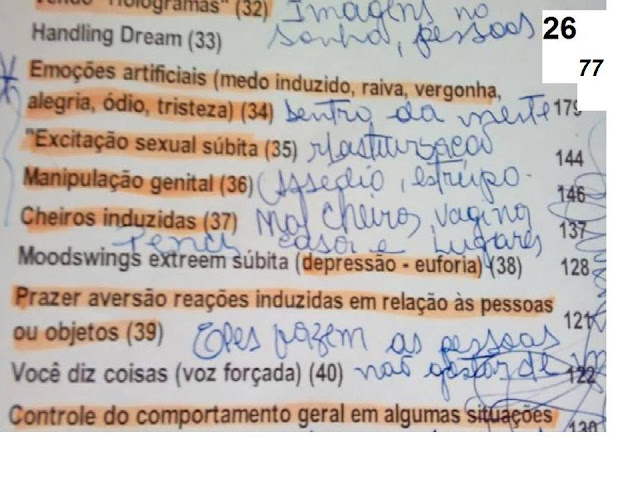 "Hologramas" (32) Imagens no
Handling Dream (33) sonho, pessoas 26
77
Emoções artificiais (medo induzido, raiva, vergonha,
alegria, ódio, tristeza) (34) Dentro da mente 179
"Excitação sexual súbita (35) Masturbação 144
Manipulação genital (36) (Assedio, estrupo. 146
Cheiros induzidas (37) Mal cheiros, vagina 137
casa e Lugares
Moodswings extreem súbita (depressão - euforia) (38) 128
Prazer aversão reações induzidas em relação às pessoas
ou objetos (39) Eles fazem as pessoas 121
Você diz coisas (voz forçada) (40) não gostar de 122
Controle do comportamento geral em algumas situações
130